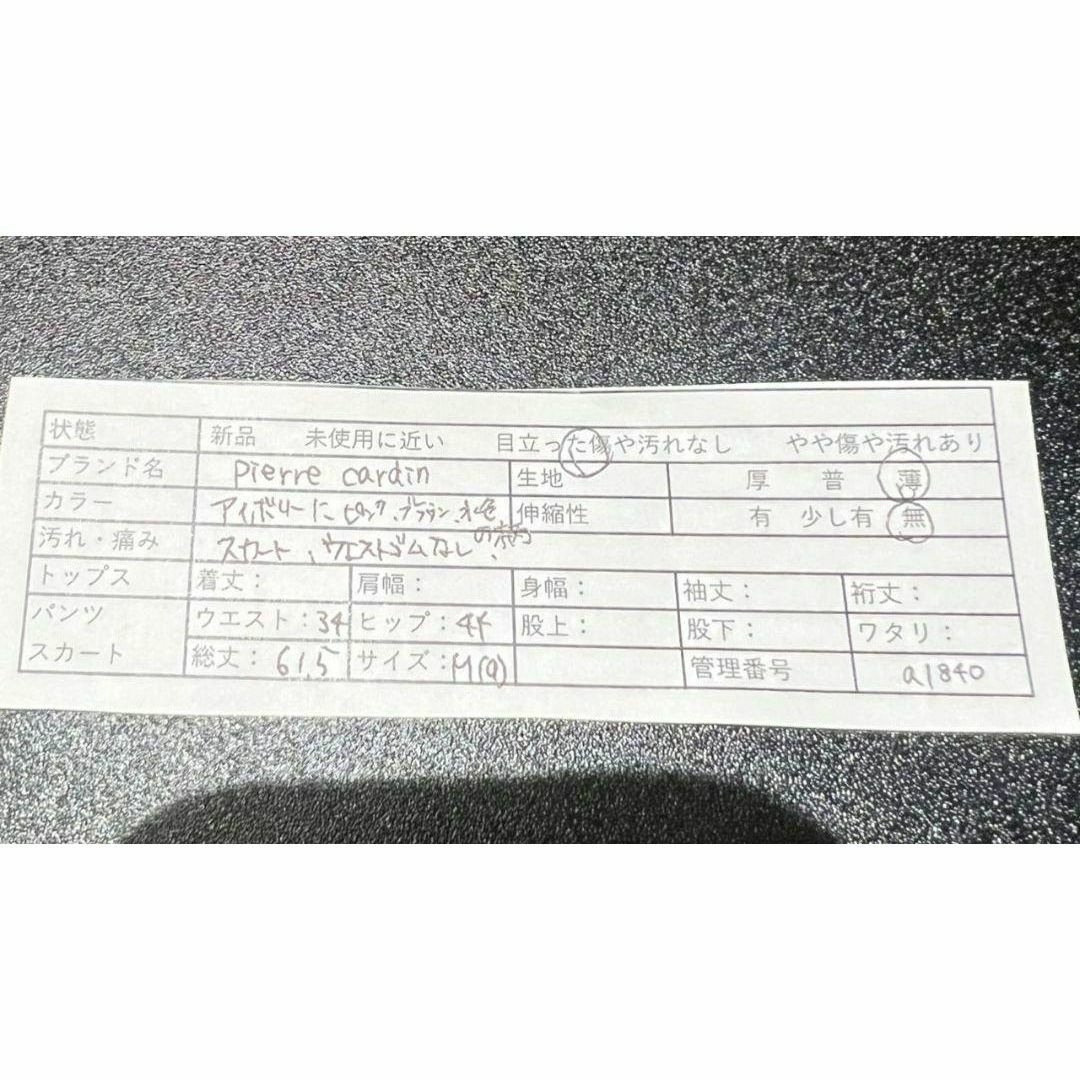 状態 新品 未使用に近い 目立った傷や汚れなし やや傷や汚れあり
ブランド名 pierre cardin 生地 厚 普 薄
カラー アイボリーに、ピンク、ブラウン、水色の柄 伸縮性 有 少し有 無
汚れ・痛み スカート、ウエストゴムなし、
トップス 着丈: 肩幅: 身幅: 袖丈: 裄丈:
パンツ ウエスト:34 ヒップ:44 股上: 股下: ワタリ:
スカート 総丈:61.5 サイズ:M(9) 管理番号 a1840